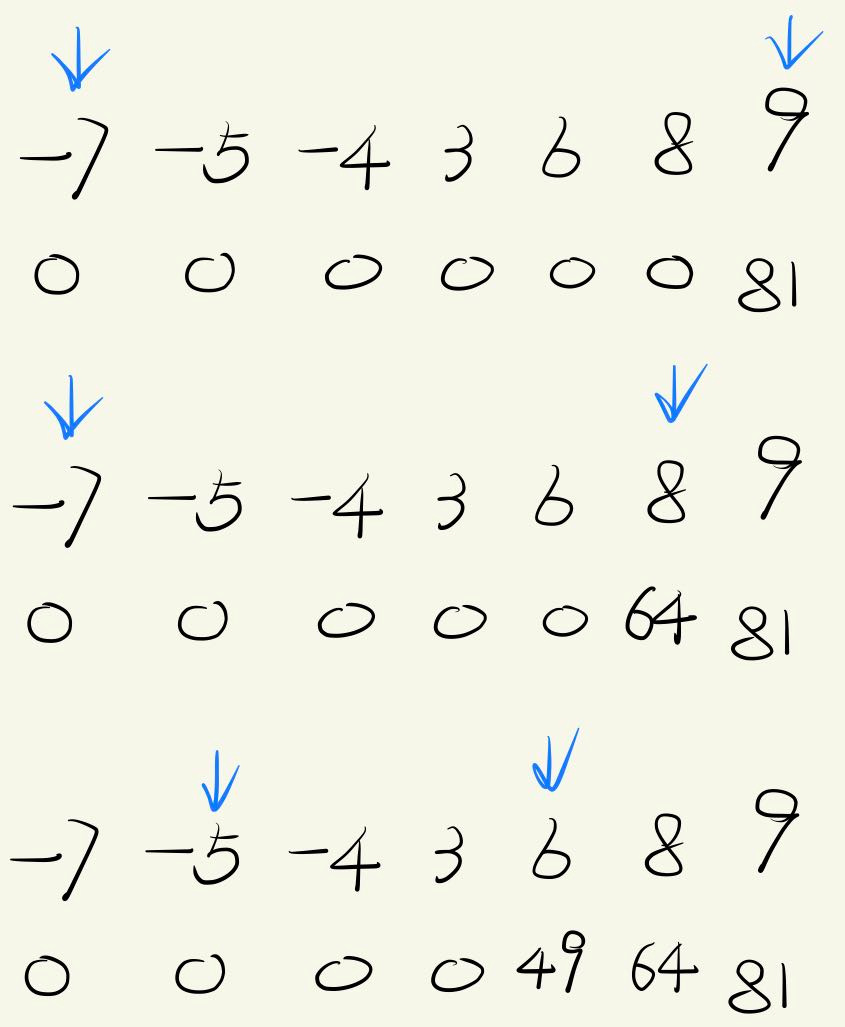 -7 -5 -4 3 6 8 9
0 0 0 0 0 0 81
-7 -5 -4 3 6 8 9
0 0 0 0 0 64 81
-7 -5 -4 3 6 8 9
0 0 0 0 49 64 81